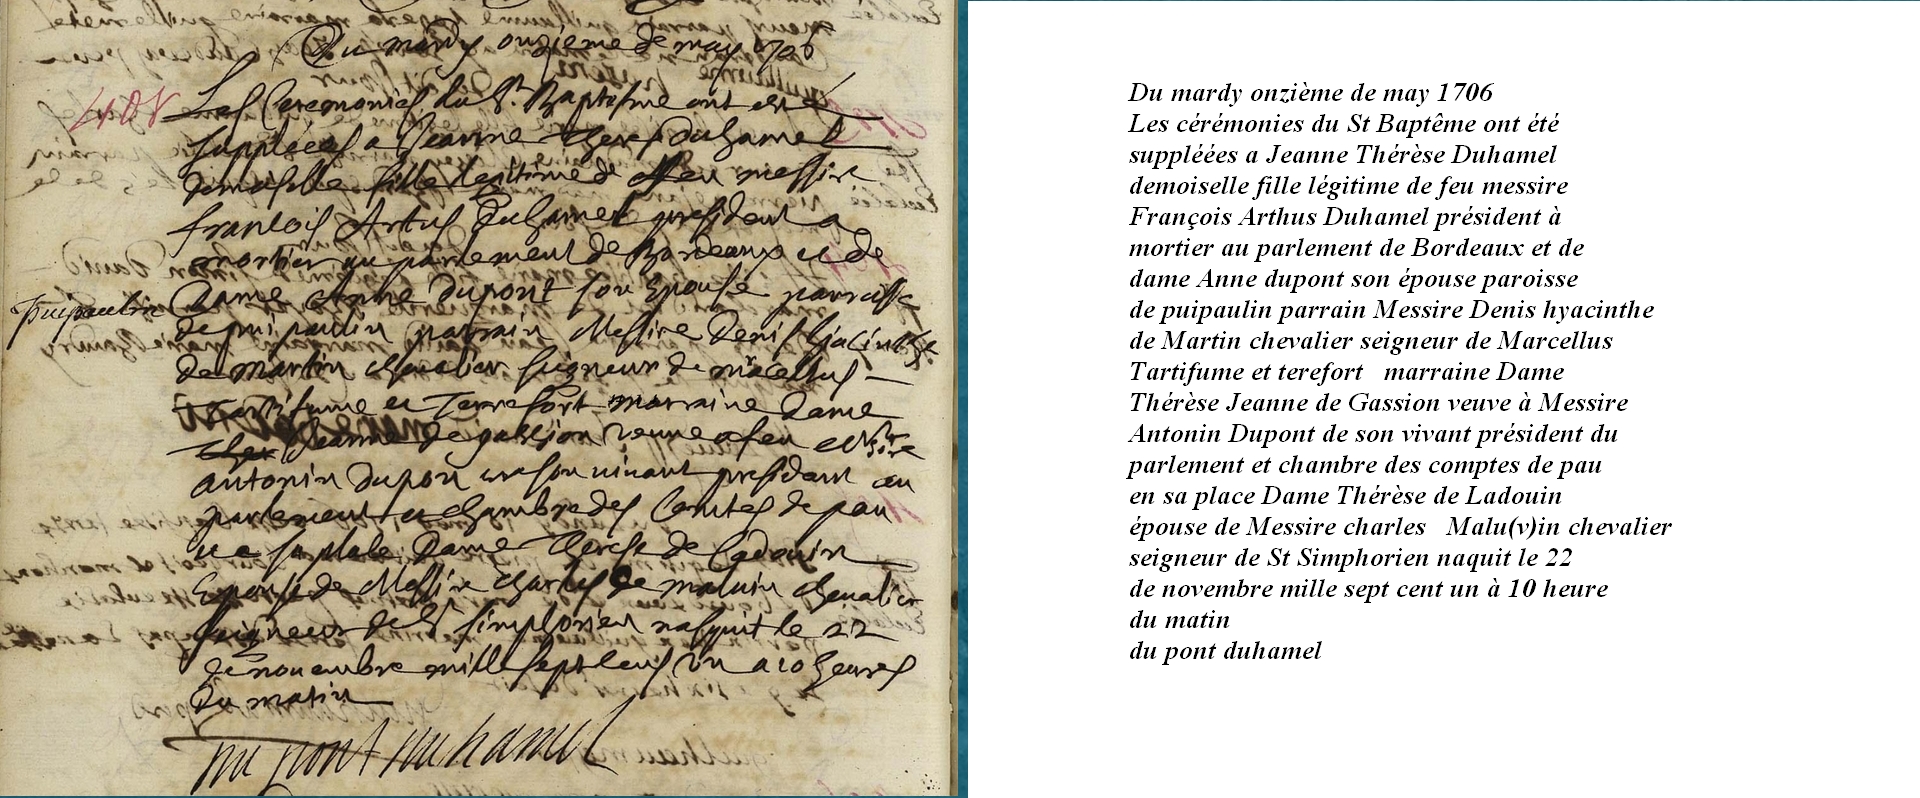 Du mardy onzieme de may 1706
408
Les Ceremonies du St. Baptesme ont esté
supplées a Jeanne Duhamel
demoselle fille legitime de feu messire
francois Artus Duhamel president a
mortier au parlement de Bordeaux et de
Puipaulin
Dame Anne Dupont son Epouse parroisse
de puipaulin parrain Messire Denis hiacinthe
de martin chevalier seigneur de marcellus
Tartifume et Terrefort marraine Dame
Jeanne de gassion veuve a feu Messire
antonin dupon en son vivant president au
parlement et chambre des Comtes de pau
sa place Dame Therese de Ladouin
Epouse de Messire charles de maluin chevalier
seigneur de St simphorien nasquit le 22
de novembre mille sept cens un a 10 heures
du matin
Du pont duhamel
Du mardy onzième de may 1706
Les cérémonies du St Baptême ont été
suppléées a Jeanne Thérèse Duhamel
demoiselle fille légitime de feu messire
François Arthus Duhamel président à
mortier au parlement de Bordeaux et de
dame Anne dupont son épouse paroisse
de puipaulin parrain Messire Denis hyacinthe
de Martin chevalier seigneur de Marcellus
Tartifume et terefort marraine Dame
Thérèse Jeanne de Gassion veuve à Messire
Antonin Dupont de son vivant président du
parlement et chambre des comptes de pau
en sa place Dame Thérèse de Ladouin
épouse de Messire charles Malu(v)in chevalier
seigneur de St Simphorien naquit le 22
de novembre mille sept cent un à 10 heure
du matin
du pont duhamel